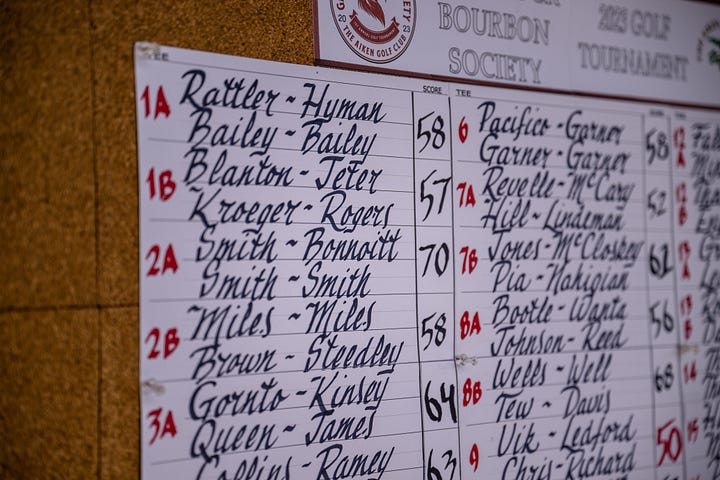 SOCIETY
20 23
THE AIKEN GOLF CLUB
BOURBON
SOCIETY
2023 GOLF
TOURNAMENT
TEE SCORE
1A Rattler ~ Hyman 58
Bailey ~ Bailey
1B Blanton ~ Jeter 57
Kroeger ~ Rogers
2A Smith ~ Bonnoitt 70
Smith ~ Smith
2B Miles ~ Miles 58
Brown ~ Steedley
3A Gornto ~ Kinsey 64
Queen ~ James
Collins ~ Ramey 63
TEE
6 Pacifico - Garner 58
Garner - Garner
7A Revelle - McCary 52
Hill - Lindeman
7B Jones - McCloskey 62
Pia - Nahigian
8A Bootle - Wanta 56
Johnson - Reed
8B Wells - Well 68
Tew - Davis
9 Vik - Ledford 50
Chris - Richard
12A
12B
13A
13B
14
15